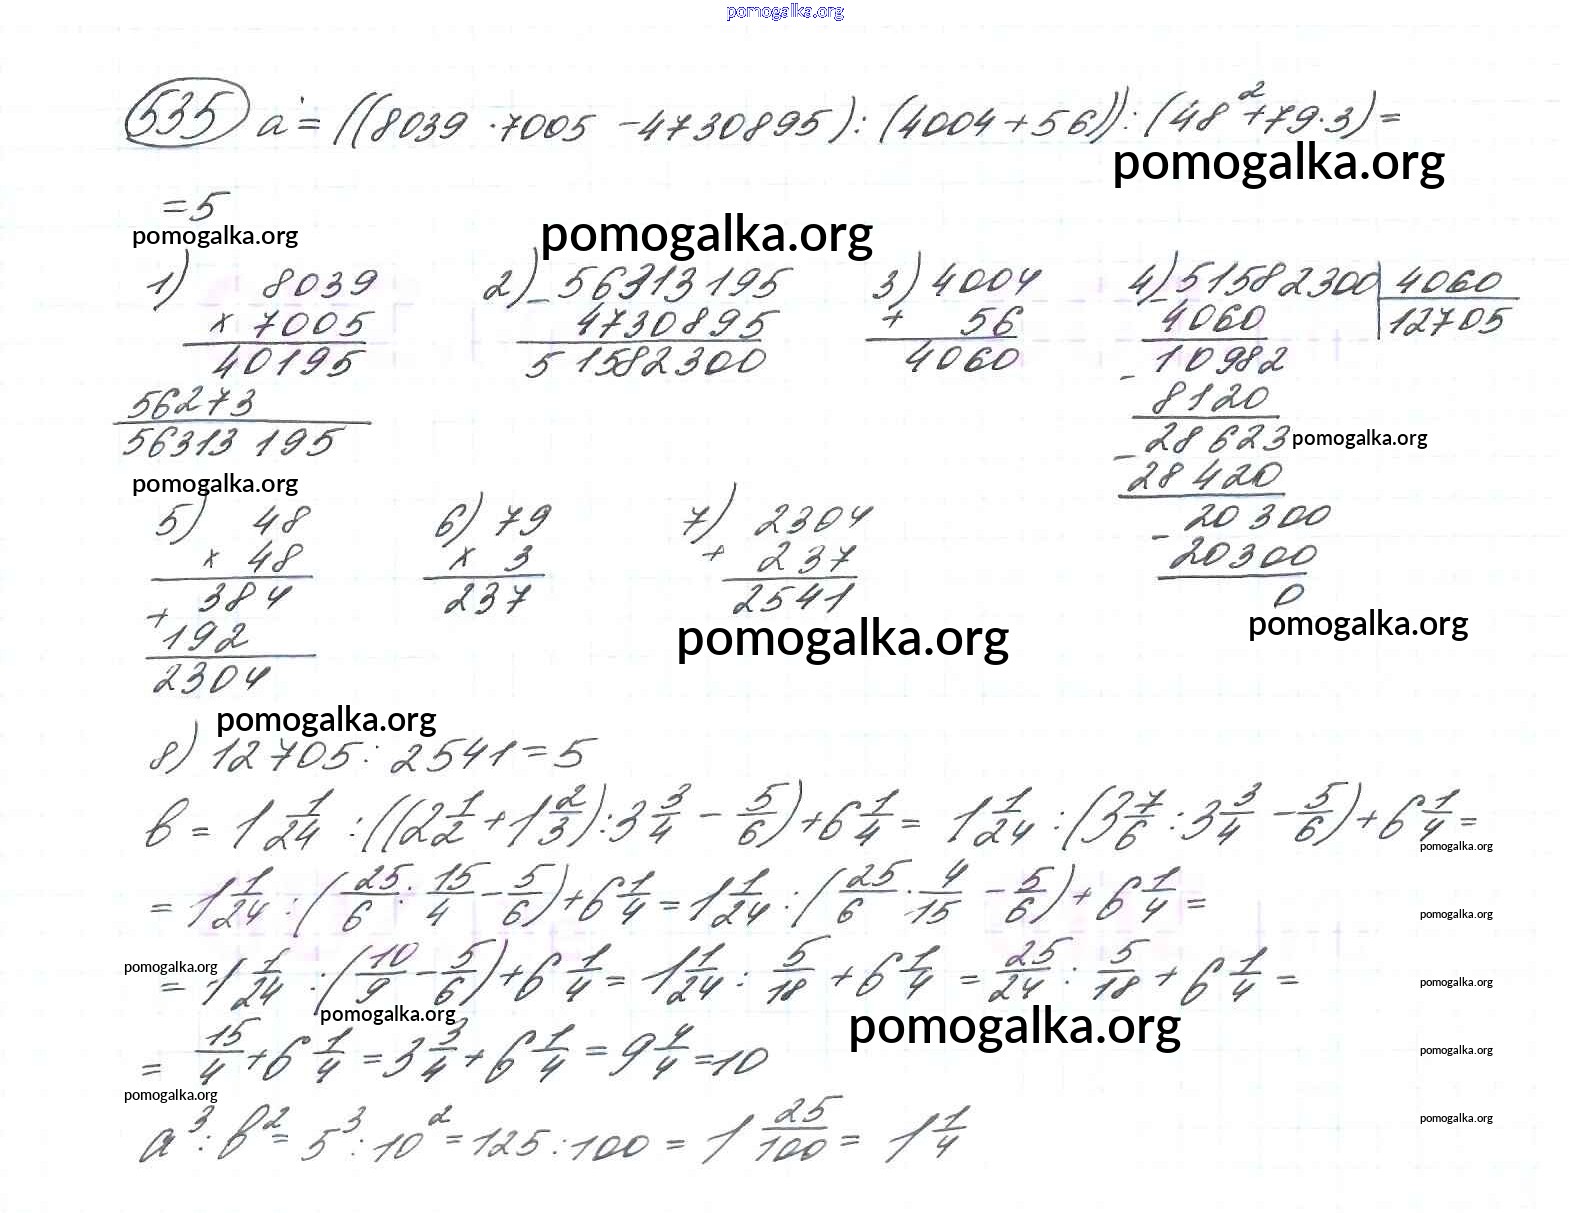 pomogalka.org
535 a = ((8039 · 7005 − 4730895) : (4004 + 56)) : (48² + 79 · 3) =
pomogalka.org
= 5
pomogalka.org pomogalka.org
1) 8039 2) − 56313195 3) 4004 4) − 51582300 | 4060
× 7005 4730895 + 56 4060 | 12705
40195 51582300 4060 − 10982
56273 8120
56313195 − 28623 pomogalka.org
pomogalka.org 28420
5) 48 6) 79 7) 2304 − 20300
× 48 × 3 + 237 20300
384 237 2541 0
+ 192 pomogalka.org pomogalka.org
2304
pomogalka.org
8) 12705 : 2541 = 5
b = 1 1/24 : ((2 1/2 + 1 2/3) : 3 3/4 − 5/6) + 6 1/4 = 1 1/24 : (3 7/6 : 3 3/4 − 5/6) + 6 1/4 =
pomogalka.org
= 1 1/24 : (25/6 : 15/4 − 5/6) + 6 1/4 = 1 1/24 : (25/6 · 4/15 − 5/6) + 6 1/4 =
pomogalka.org
pomogalka.org
= 1 1/24 : (10/9 − 5/6) + 6 1/4 = 1 1/24 : 5/18 + 6 1/4 = 25/24 : 5/18 + 6 1/4 =
pomogalka.org
pomogalka.org pomogalka.org
= 15/4 + 6 1/4 = 3 3/4 + 6 1/4 = 9 4/4 = 10
pomogalka.org
pomogalka.org
a³ : b² = 5³ : 10² = 125 : 100 = 1 25/100 = 1 1/4
pomogalka.org